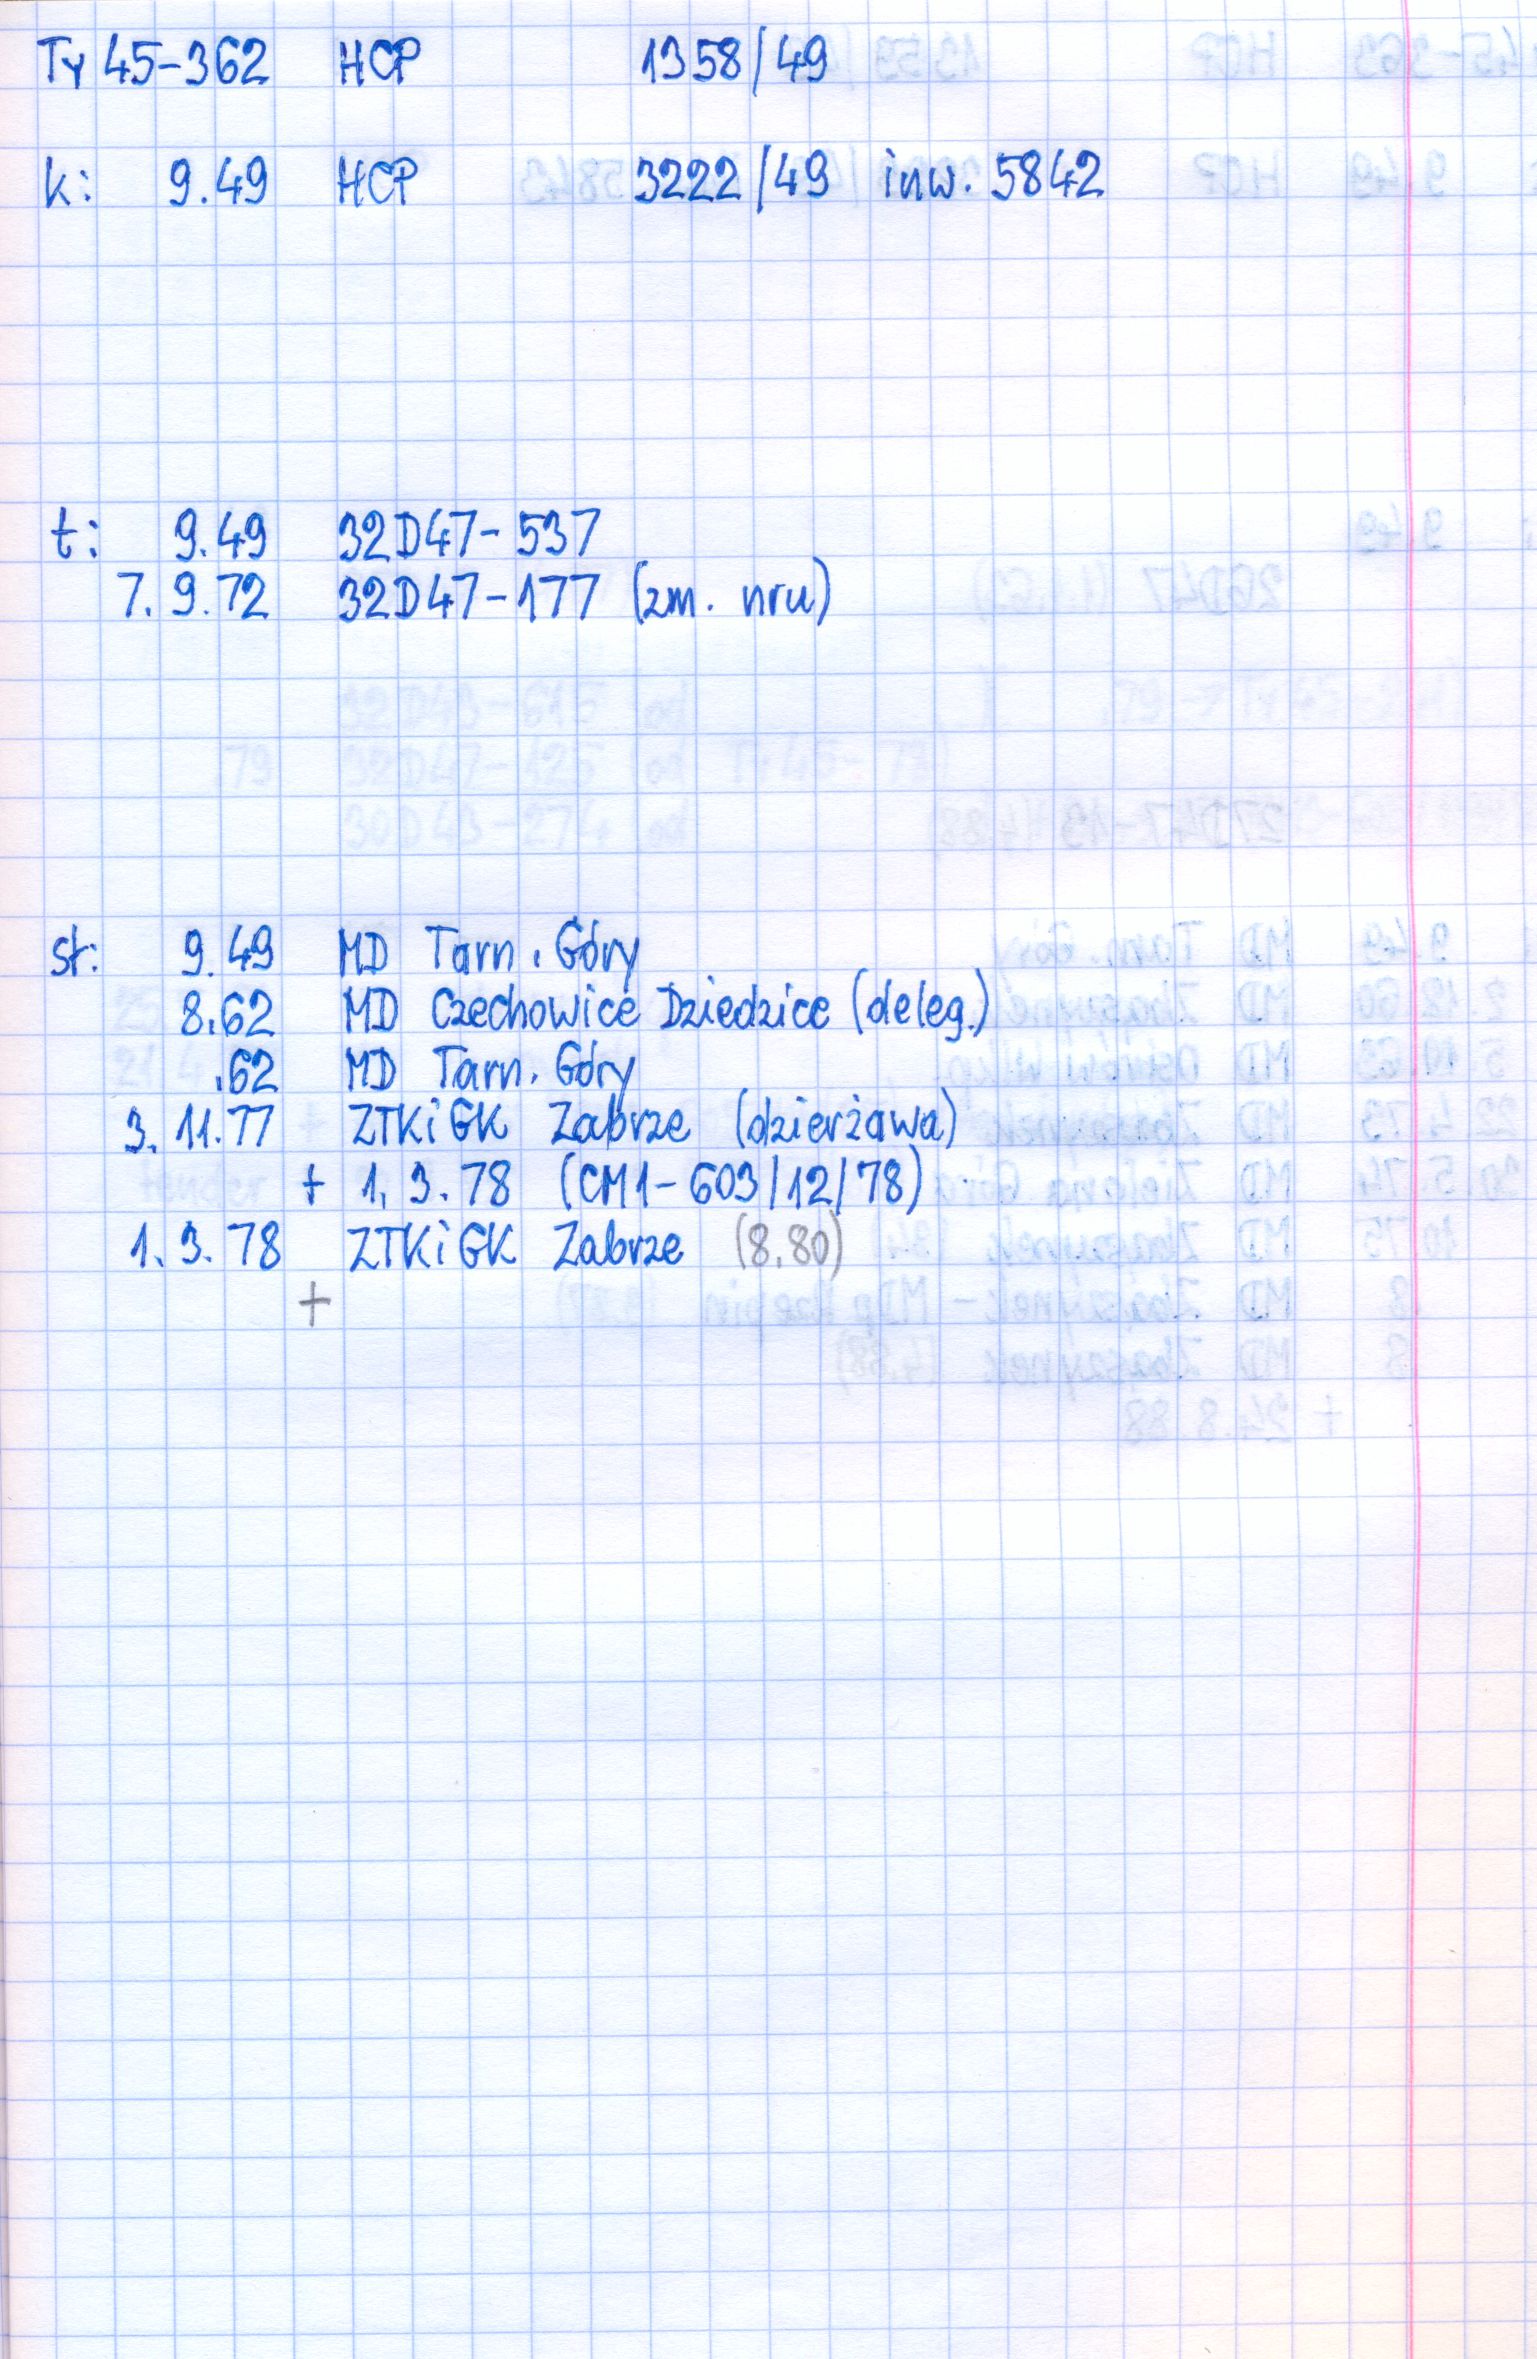 Ty 45-362 HCP 1358/49
k: 9.49 HCP 3222/49 inw. 5842
t: 9.49 32D47-537
7.9.72 32D47-177 (zm. nru)
st: 9.49 MD Tarn. Góry
8.62 MD Czechowice Dziedzice (deleg.)
.62 MD Tarn. Góry
3.11.77 ZTKiGK Zabrze (dzierżawa)
+ 1.3.78 (CM1-603/12/78)
1.3.78 ZTKiGK Zabrze (8.80)
+